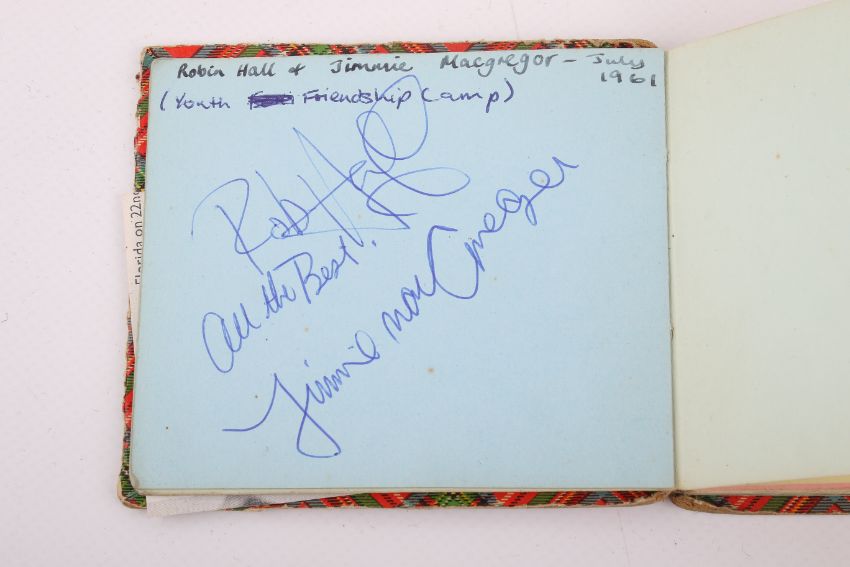 Robin Hall & Jimmie Macgregor - July
1961
(Youth Friendship Camp)
Rob Hall
All the Best!
Jimmie MacGregor
Florida on 22n